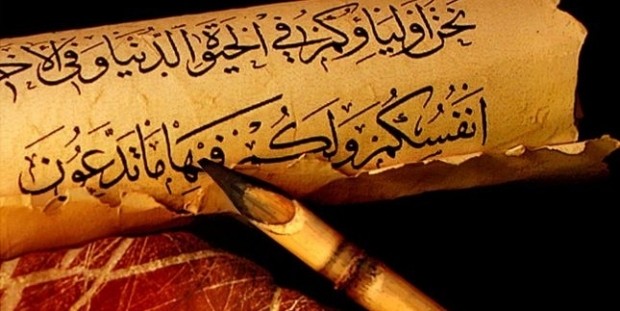 نحن اولياؤكم في الحيوة الدنيا وفي الاخ
انفسكم ولكم فيها ما تدعون